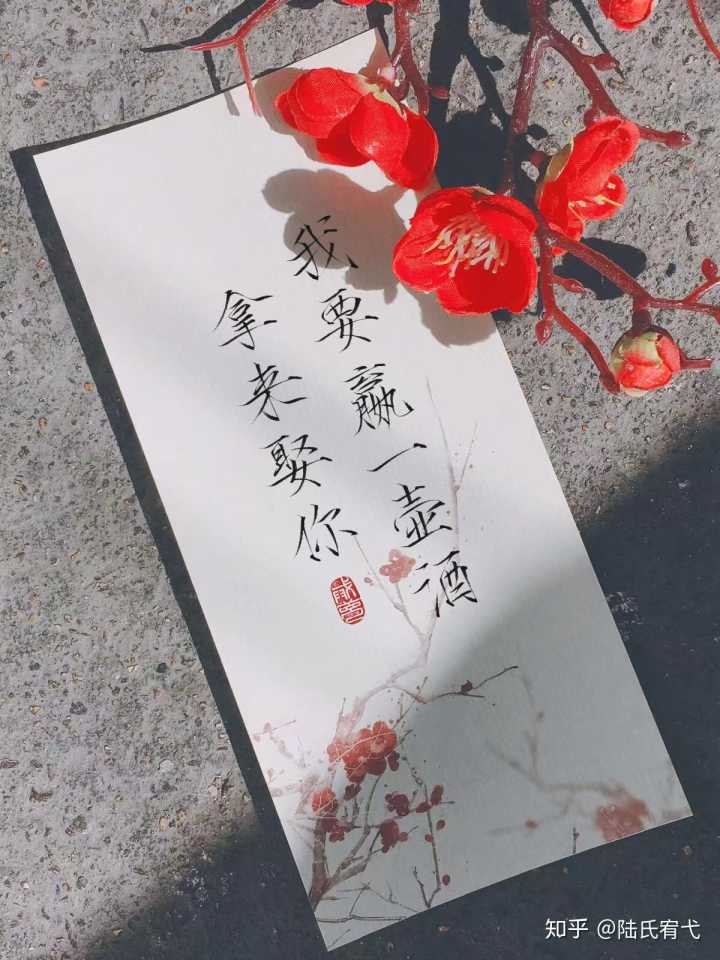 我要赢一壶酒
拿来娶你
知乎 @陆氏宥弋